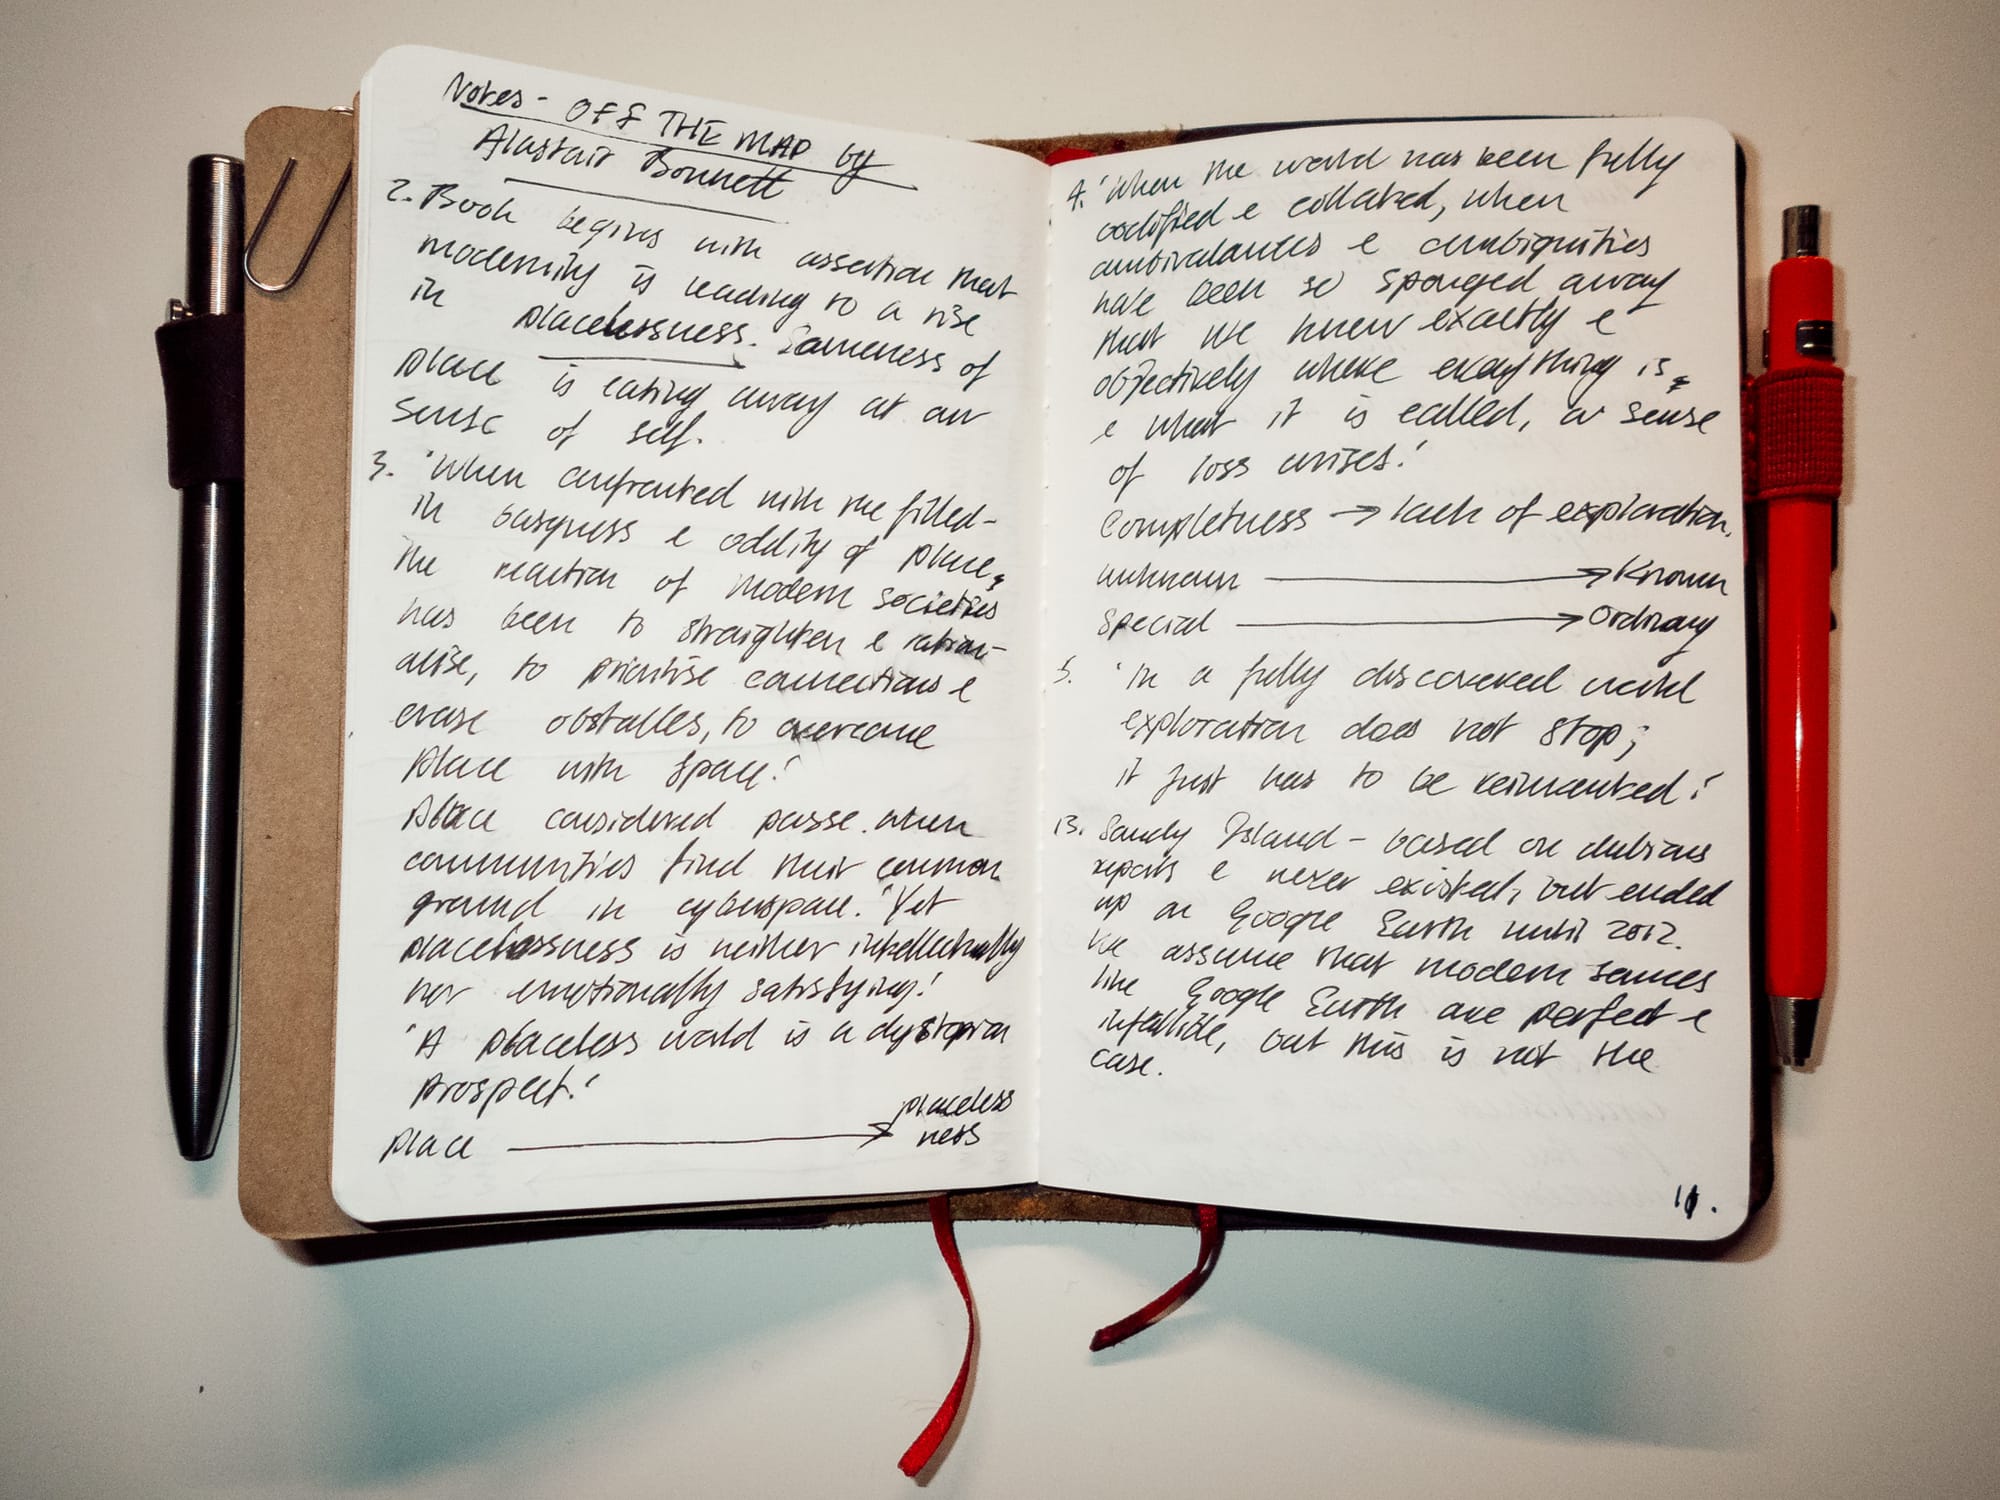 Notes - OFF THE MAP by
Alastair Bonnett
2. Book begins with assertion that
modernity is leading to a rise
in placelessness. Sameness of
place is eating away at our
sense of self.
3. 'When confronted with the filled-
in busyness & oddity of place,
the reaction of modern societies
has been to straighten & ration-
alise, to prioritise connections &
erase obstacles, to overcome
place with space.'
Place considered passe when
communities find their common
ground in cyberspace. 'Yet
placelessness is neither intellectually
nor emotionally satisfying.'
'A placeless world is a dystopian
prospect.'
place → placeless
ness
4. 'When the world has been fully
codified & collated, when
ambivalances & ambiguities
have been so sponged away
that we know exactly &
objectively where everything is,
& what it is called, a sense
of loss arises.'
Completness → lack of exploration.
unknown → Known
Special → Ordinary
5. 'In a fully discovered world
exploration does not stop;
it just has to be reinvented.'
13. Sandy Island - based on dubious
reports & never existed, but ended
up on Google Earth until 2012.
We assume that modern sources
like Google Earth are perfect &
infallible, but this is not the
case.